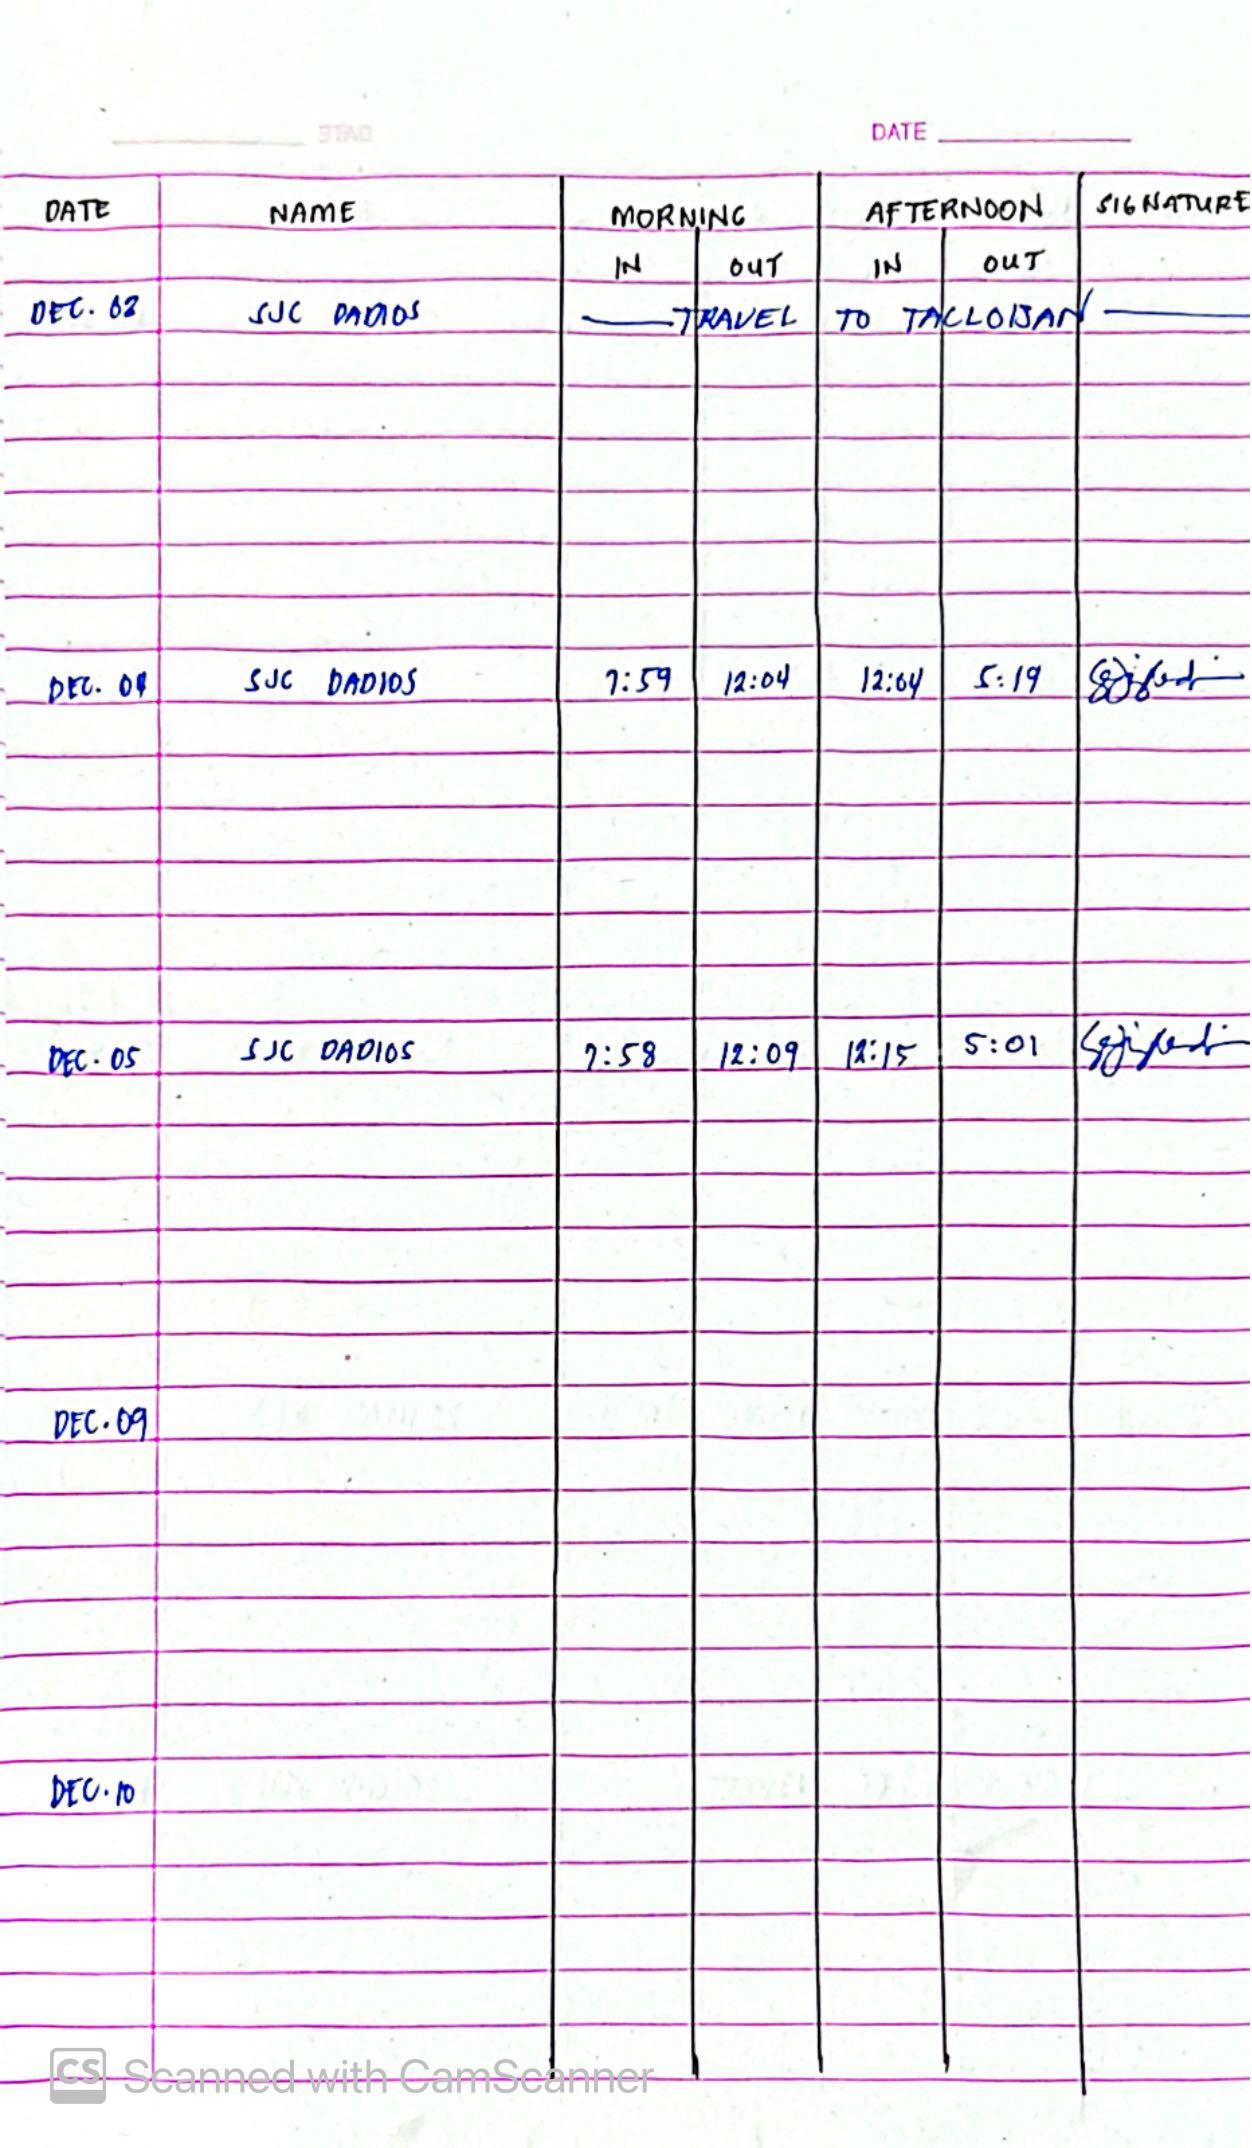 DATE
DATE NAME MORNING AFTERNOON SIGNATURE
IN OUT IN OUT
DEC. 02 SJC DADIOS TRAVEL TO TACLOBAN
DEC. 04 SJC DADIOS 7:59 12:04 12:04 5:19
DEC. 05 SJC DADIOS 7:58 12:09 12:15 5:01
DEC. 09
DEC. 10
CS Scanned with CamScanner